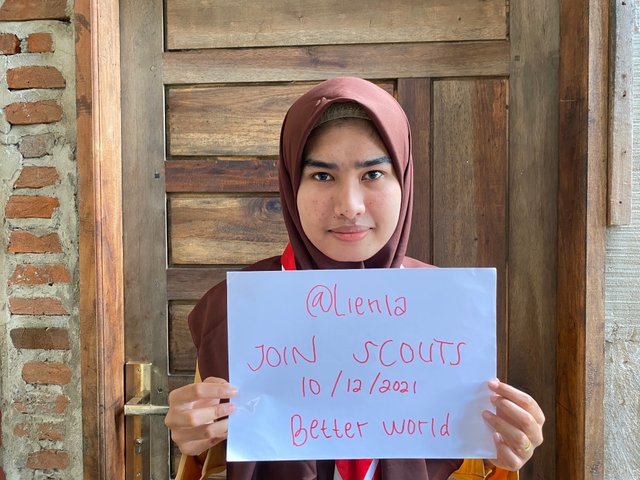 @Lienla
JOIN SCOUTS
10/12/2021
Better world